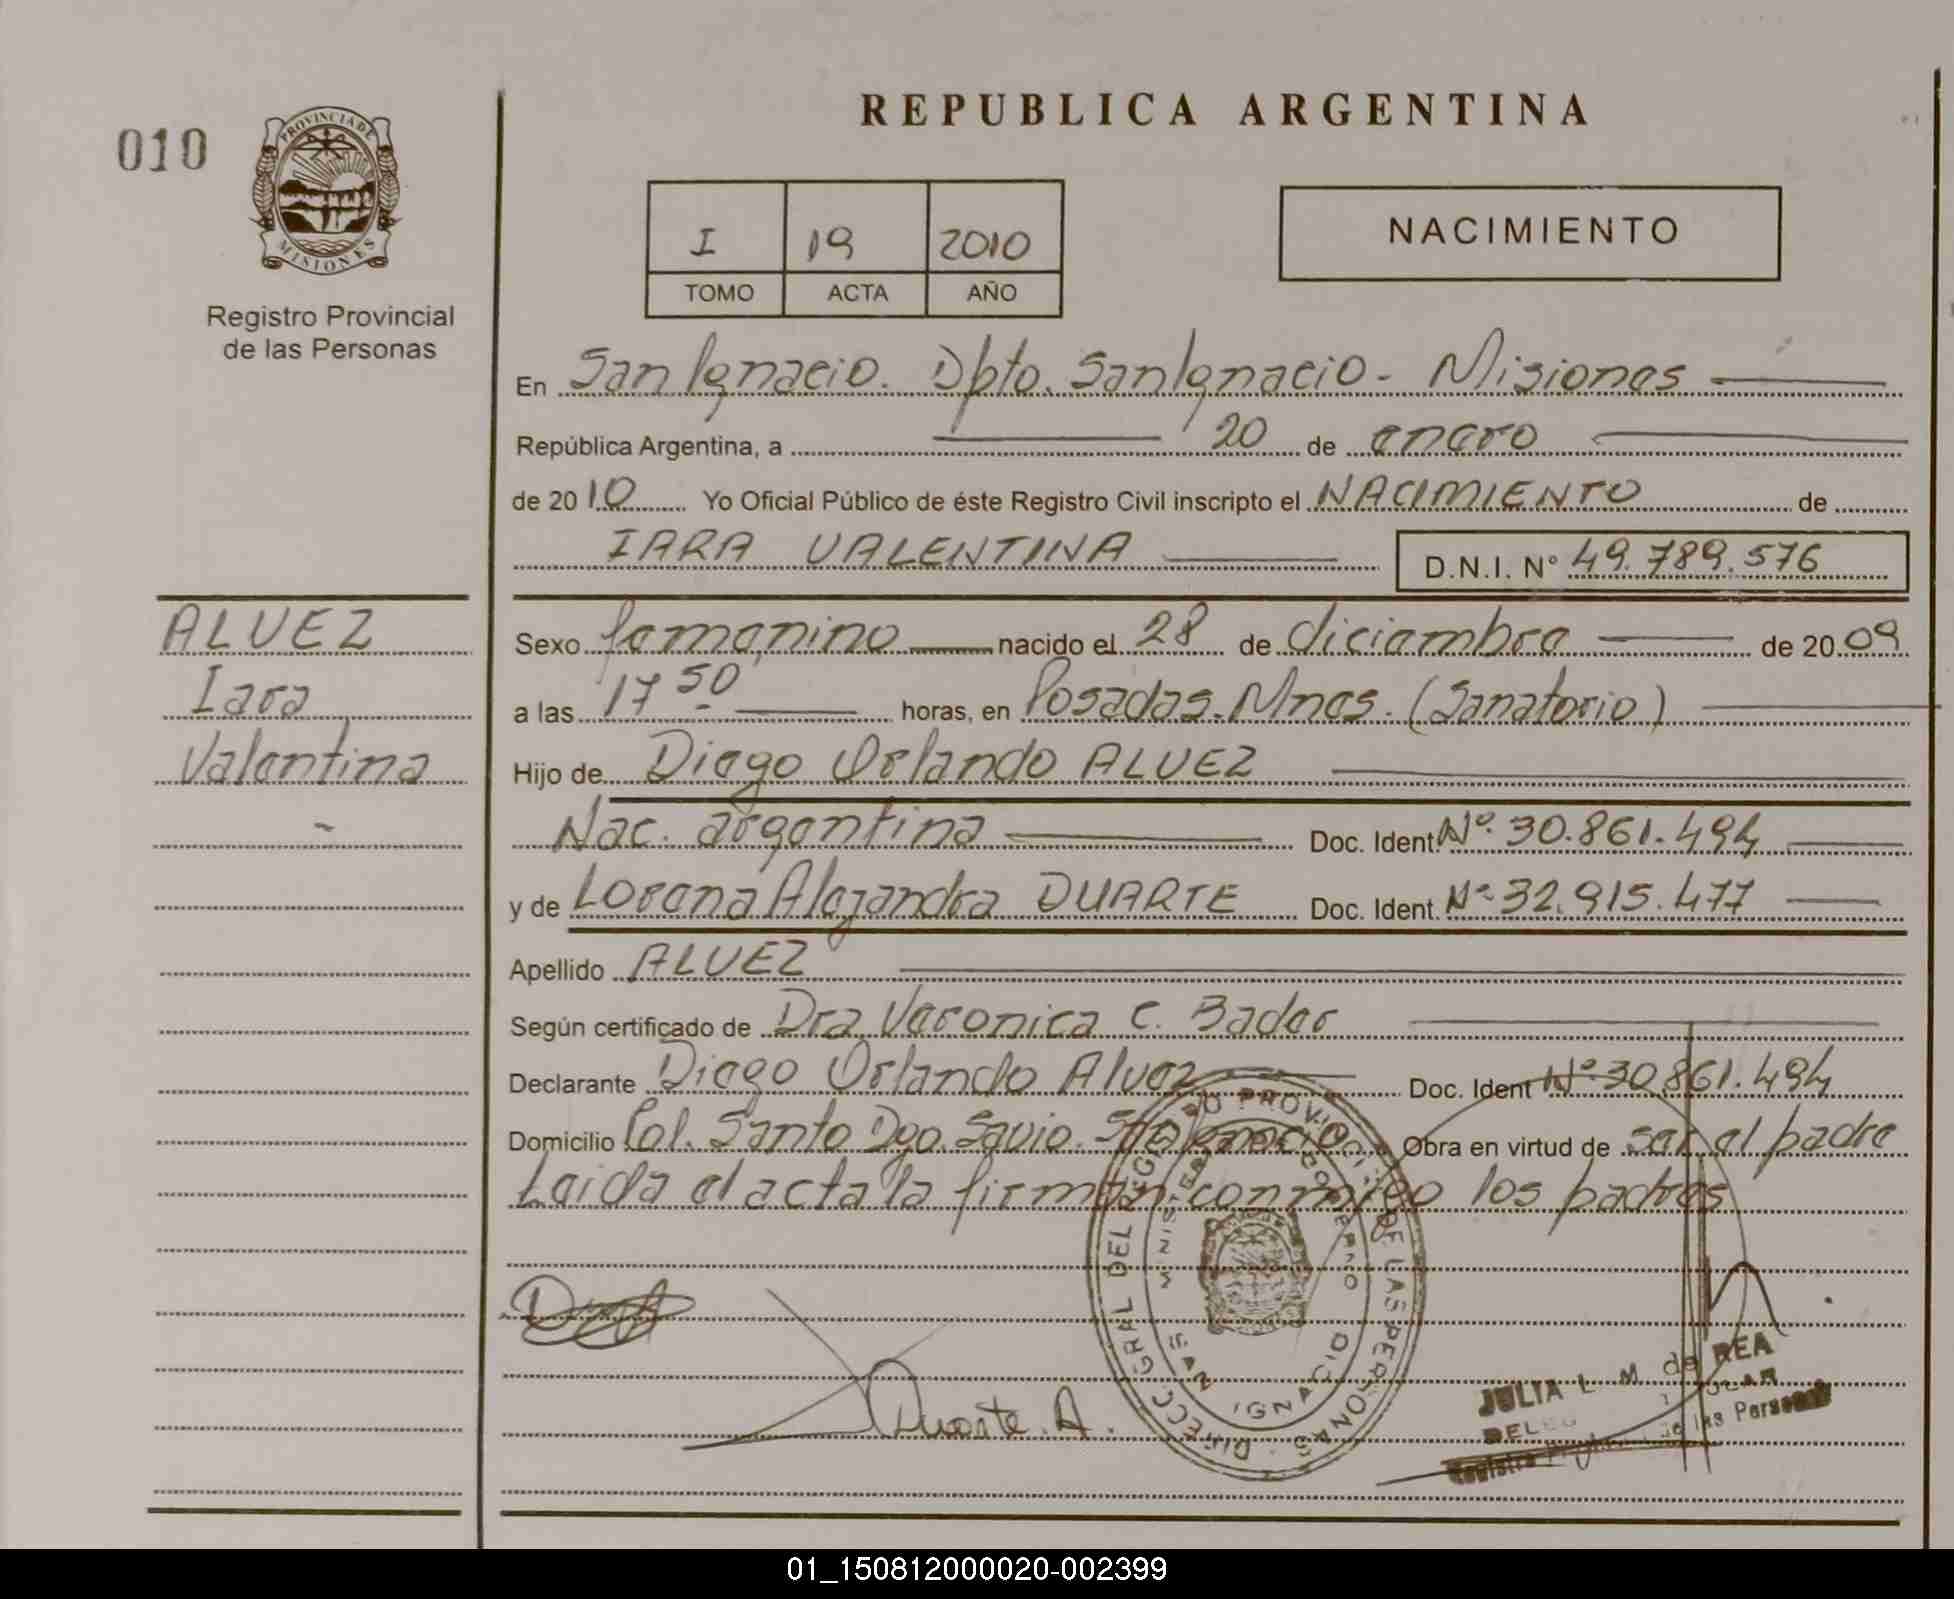 REPUBLICA ARGENTINA
010
PROVINCIA DE
MISIONES
Registro Provincial
de las Personas
I 19 2010
TOMO ACTA AÑO
NACIMIENTO
En San Ignacio. Dpto. San Ignacio - Misiones
República Argentina, a 20 de enero
de 2010 Yo Oficial Público de éste Registro Civil inscripto el NACIMIENTO de
IARA VALENTINA D.N.I. Nº 49.789.576
ALVEZ
Iara
Valentina
Sexo femenino nacido el 28 de diciembre de 2009
a las 17 50 horas, en Posadas. Mnes. (Sanatorio)
Hijo de Diego Orlando ALVEZ
Nac. argentina Doc. Ident. Nº. 30.861.494
y de Lorena Alejandra DUARTE Doc. Ident. Nº 32.915.477
Apellido ALVEZ
Según certificado de Dra Veronica C. Bader
Declarante Diego Orlando Alvez Doc. Ident Nº 30.861.494
Domicilio Col. Santo Dgo. Savio. Sn Ignacio Obra en virtud de ser el padre
Leida el acta la firman conmigo los padres
DIRECC GRAL DEL REGISTRO PROVINCIAL DE LAS PERSONAS
MINISTERIO DE GOBIERNO
SAN IGNACIO
Duarte. A.
JULIA L. M. de REA
Registro de las Personas
01_150812000020-002399